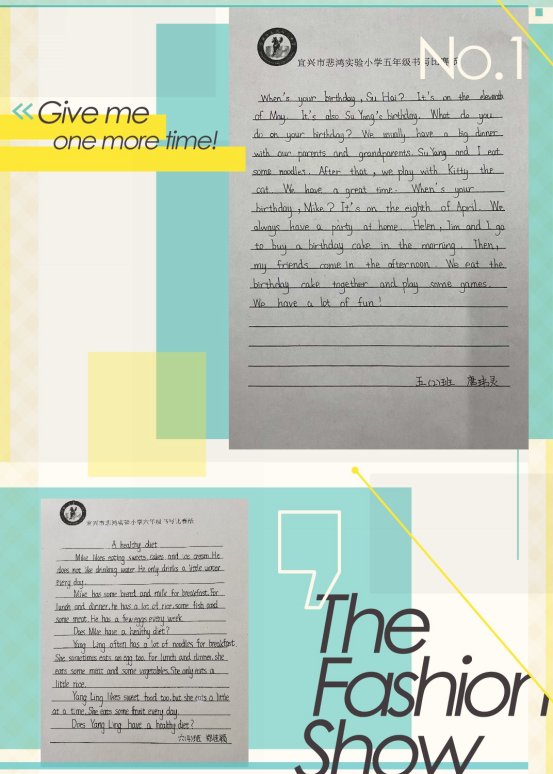 No.1
« Give me
one more time!
宜兴市悲鸿实验小学五年级书写比赛
When's your birthday, Su Hai? It's on the eleventh
of May. It's also Su Yang's birthday. What do you
do on your birthday? We usually have a big dinner
with our parents and grandparents. Su Yang and I eat
some noodles. After that, we play with Kitty the
cat. We have a great time. When's your
birthday, Mike? It's on the eighth of April. We
always have a party at home. Helen, Tim and I go
to buy a birthday cake in the morning. Then,
my friends come in the afternoon. We eat the
birthday cake together and play some games.
We have a lot of fun!
五(2)班
宜兴市悲鸿实验小学六年级书写比赛纸
A healthy diet
Mike likes eating sweets, cakes and ice cream. He
does not like drinking water. He only drinks a little water
every day.
Mike has some bread and milk for breakfast. For
lunch and dinner, he has a lot of rice, some fish and
some meat. He has a few eggs every week.
Does Mike have a healthy diet?
Yang Ling often has a lot of noodles for breakfast.
She sometimes eats an egg too. For lunch and dinner, she
eats some meat and some vegetables. She only eats a
little rice.
Yang Ling likes sweet food too, but she eats a little
at a time. She eats some fruit every day.
Does Yang Ling have a healthy diet?
The
Fashion
Show